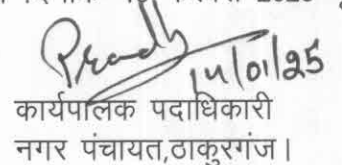 2025
14/01/25
कार्यपालक पदाधिकारी
नगर पंचायत,ठाकुरगंज।